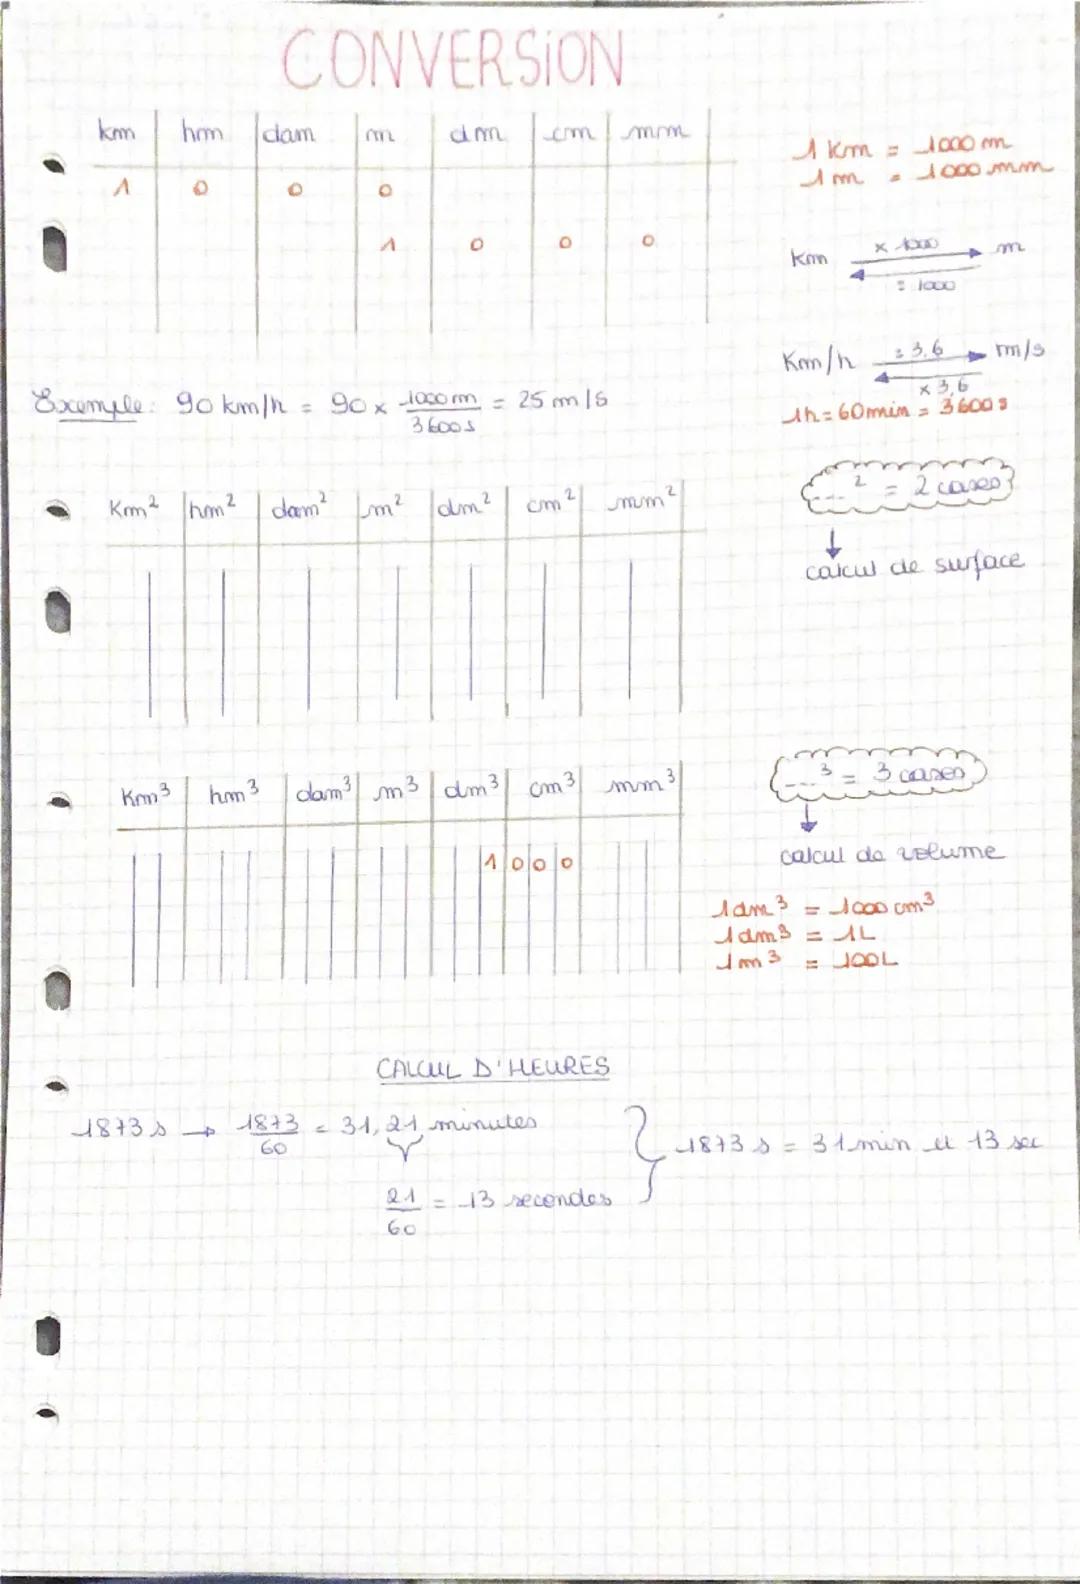 CONVERSION
km hm dam m dm cm mm
1 0 0 0
1 0 0 0
1 km = 1000 m
1 m = 1000 mm
km × 1000 m
: 1000
Km/h : 3,6 m/s
× 3,6
1h = 60min = 3600s
Exemple: 90 km/h = 90 × 1000 m / 3600 s = 25 m/s
Km² hm² dam² m² dm² cm² mm²
...² = 2 cases
↓
calcul de surface
Km³ hm³ dam³ m³ dm³ cm³ mm³
1 0 0 0
...³ = 3 cases
↓
calcul de volume
1 dm³ = 1000 cm³
1 dm³ = 1L
1 m³ = 100L
CALCUL D'HEURES
1873 s → 1873 / 60 = 31,21 minutes
21 / 60 = 13 secondes
1873 s = 31 min et 13 sec